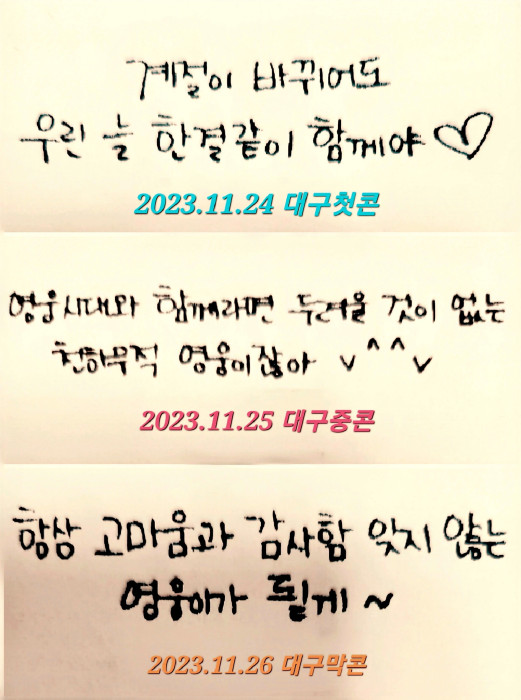 계절이 바뀌어도
우린 늘 한결같이 함께야♡
2023.11.24 대구첫콘
영웅시대와 함께라면 두려울 것이 없는
천하무적 영웅이잖아 v^^v
2023.11.25 대구중콘
항상 고마움과 감사함 잊지 않는
영웅이가 될게~
2023.11.26 대구막콘